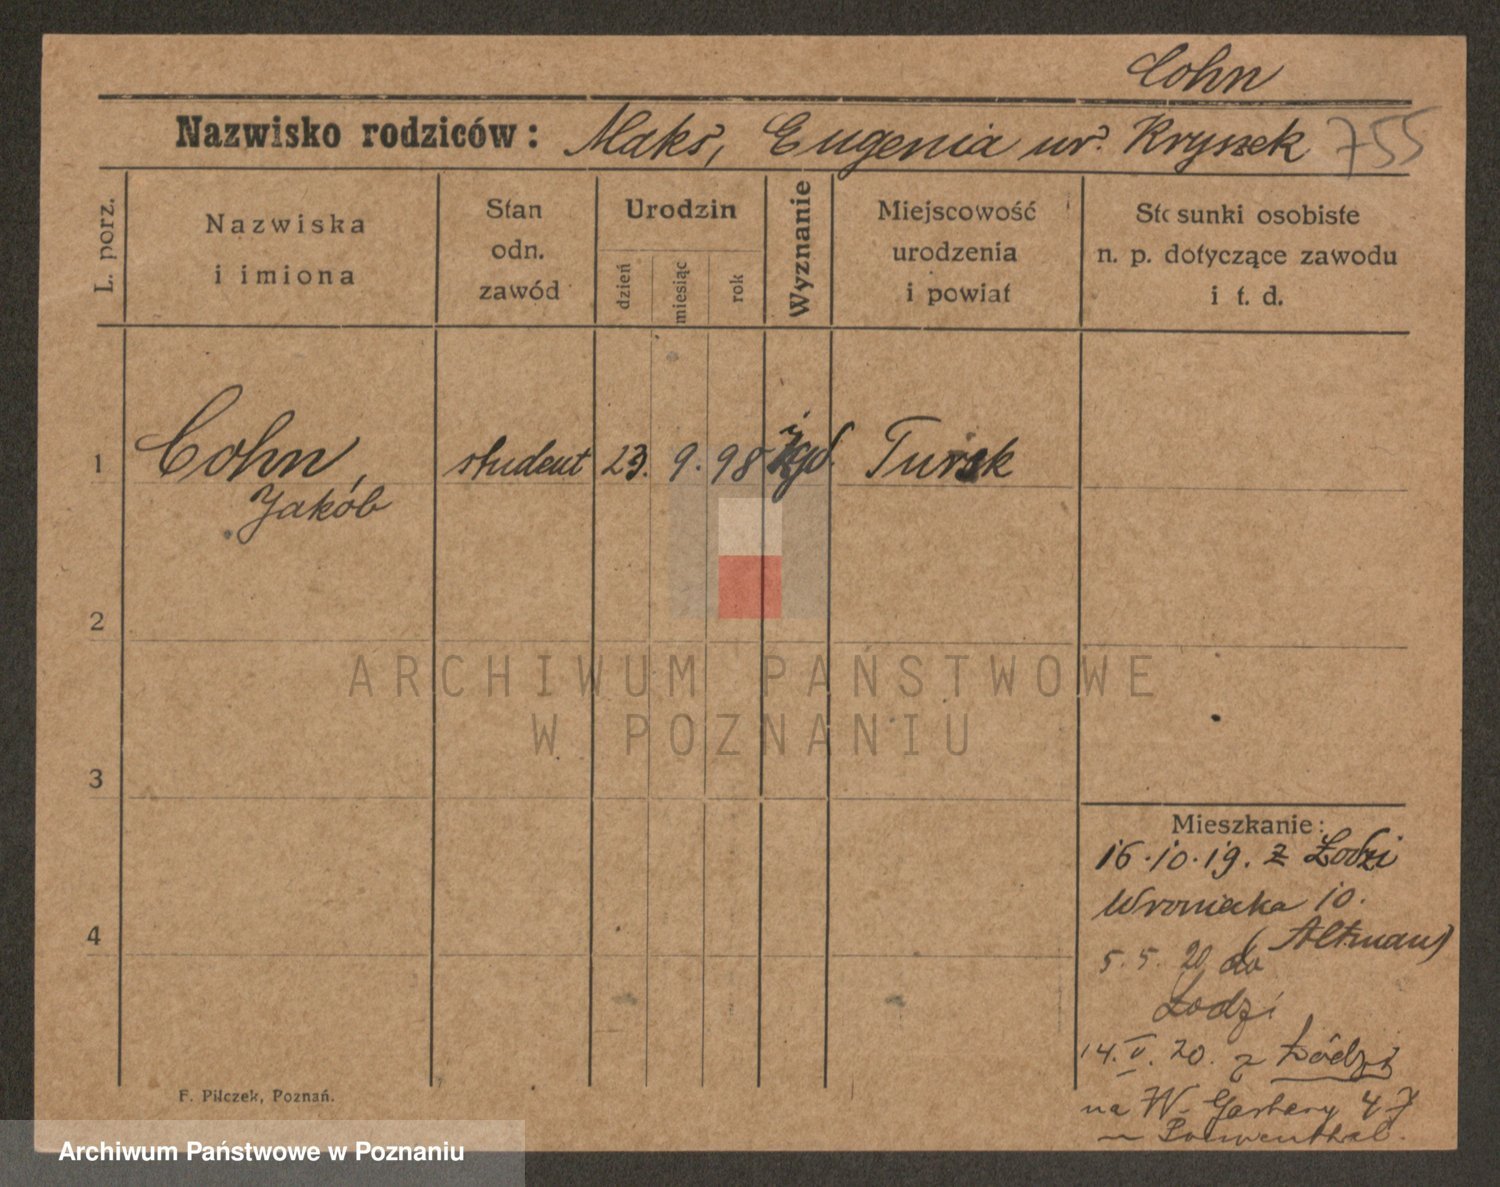 Cohn
Nazwisko rodziców: Maks, Eugenia ur. Kryszek 755
L. porz.
Nazwiska
i imiona
Stan
odn.
zawód
Urodzin
dzień
miesiąc
rok
Wyznanie
Miejscowość
urodzenia
i powiat
Stosunki osobiste
n. p. dotyczące zawodu
i t. d.
1 Cohn student 23. 9. 98 Tursk
Jakób
2
3
4
Mieszkanie:
16.10.19. z Łodzi
Wroniecka 10.
(Altmann)
5.5.20 do
Łodzi
14.V.20. z Łódzi
na W. Garbary 47
F. Pilczek, Poznań.
ARCHIWUM PAŃSTWOWE
W POZNANIU
Archiwum Państwowe w Poznaniu